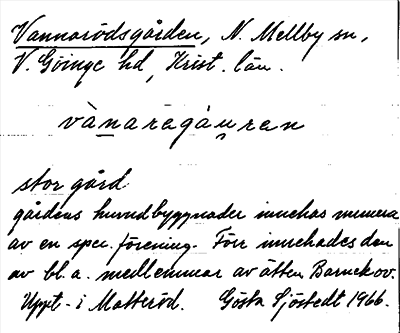 Vannarödsgården, N. Mellby sn,
V. Göinge hd, Krist. län.
vànaregáu̯ren
stor gård
gårdens huvudbyggnader innehas numera
av en spec. förening. Förr innehades den
av bl.a. medlemmar av ätten Barnekov.
Uppt. i Matteröd. Gösta Sjöstedt 1966.